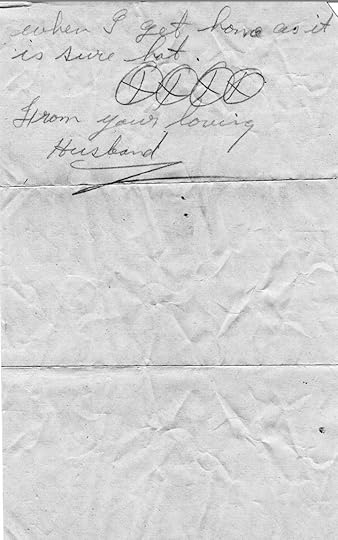 when I get home as it
is sure hot.
From your loving
Husband